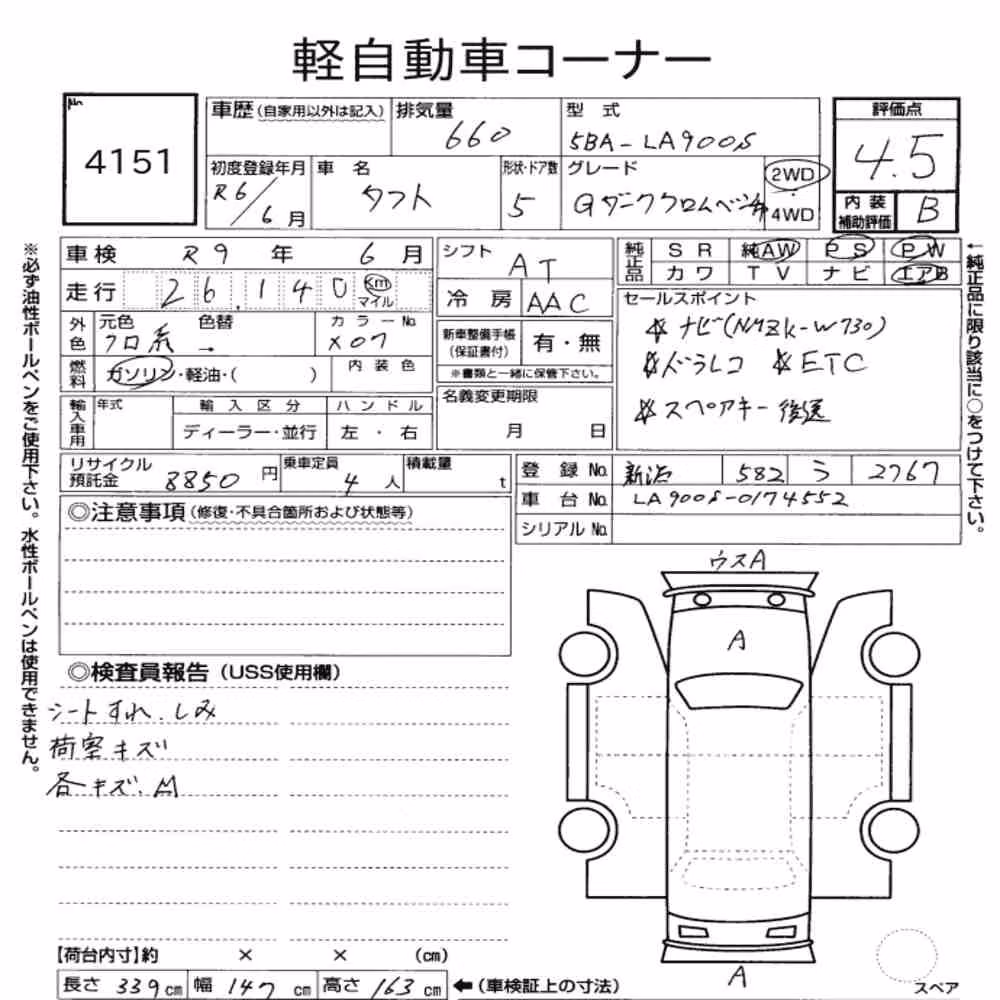 軽自動車コーナー
No.
4151
車歴(自家用以外は記入)
排気量
660
型式
5BA-LA900S
評価点
4.5
初度登録年月
R6/6月
車名
タフト
形状・ドア数
5
グレード
Gダーククロムベンチャ
2WD
・
4WD
内装
補助評価
B
車検 R9年6月
シフト
AT
純正品
SR 純AW PS PW
カワ TV ナビ エアB
走行 26,140 Km
マイル
冷房 AAC
セールスポイント
☆ナビ(NMZK-W730)
☆ドラレコ ☆ETC
☆スペアキー後送
外色
元色
クロ系
色替
→
カラーNo.
X07
新車整備手帳
(保証書付)
有・無
※書類と一緒に保管下さい。
燃料
ガソリン・軽油・( )
内装色
名義変更期限
月 日
輸入車用
年式
輸入区分
ディーラー・並行
ハンドル
左・右
リサイクル
預託金
8850円
乗車定員
4人
積載量
t
登録No. 新潟 582 う 2767
車台No. LA900S-0174552
シリアルNo.
◎注意事項(修復・不具合箇所および状態等)
◎検査員報告(USS使用欄)
シートすれ、しみ
荷室キズ
各キズ、凹
ウスA
A
A
スペア
【荷台内寸】約 × × (cm)
長さ339cm 幅147cm 高さ163cm ←(車検証上の寸法)
※必ず油性ボールペンをご使用下さい。水性ボールペンは使用できません。
←純正品に限り該当に○をつけて下さい。